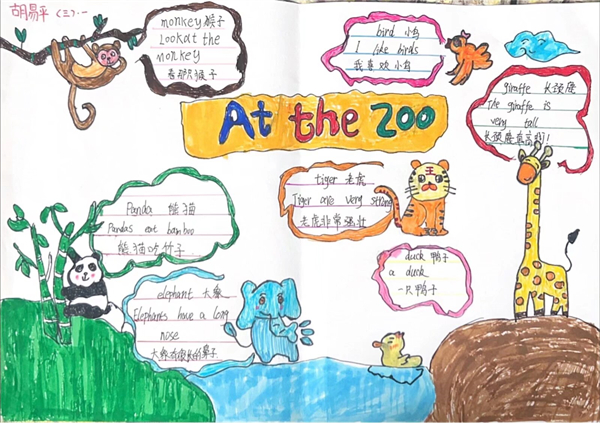 胡易平 (三).一
monkey 猴子
Look at the
monkey
看那只猴子
bird 小鸟
I like birds
我喜欢小鸟
giraffe 长颈鹿
The giraffe is
very tall
长颈鹿真高啊!
At the zoo
tiger 老虎
Tiger are very strong
老虎非常强壮
Panda 熊猫
Pandas eat bamboo
熊猫吃竹子
duck 鸭子
a duck
一只鸭子
elephant 大象
Elephants have a long
nose
大象有很长的鼻子